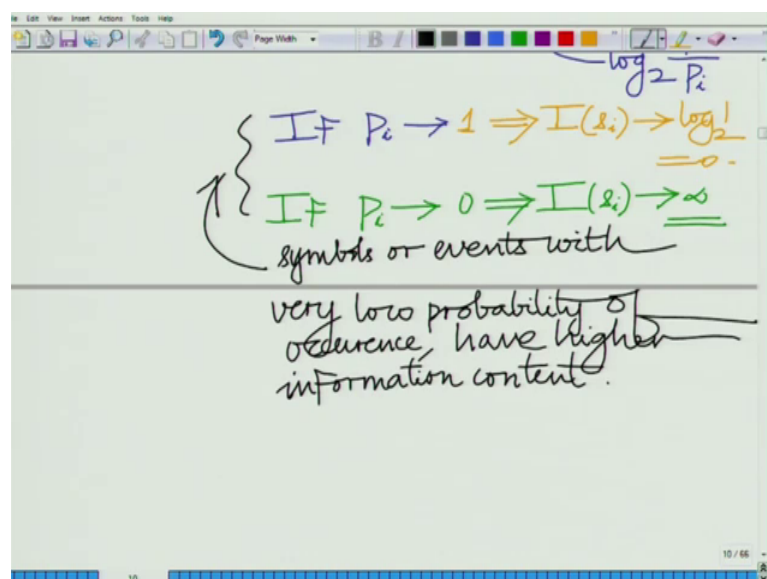 Edit View Insert Actions Tools Help
Page Width
log₂ 1/Pᵢ
IF Pᵢ → 1 ⇒ I(sᵢ) → log₂ 1
= 0.
IF Pᵢ → 0 ⇒ I(sᵢ) → ∞
symbols or events with
very low probability of
occurence, have higher
information content.
10 / 66
10